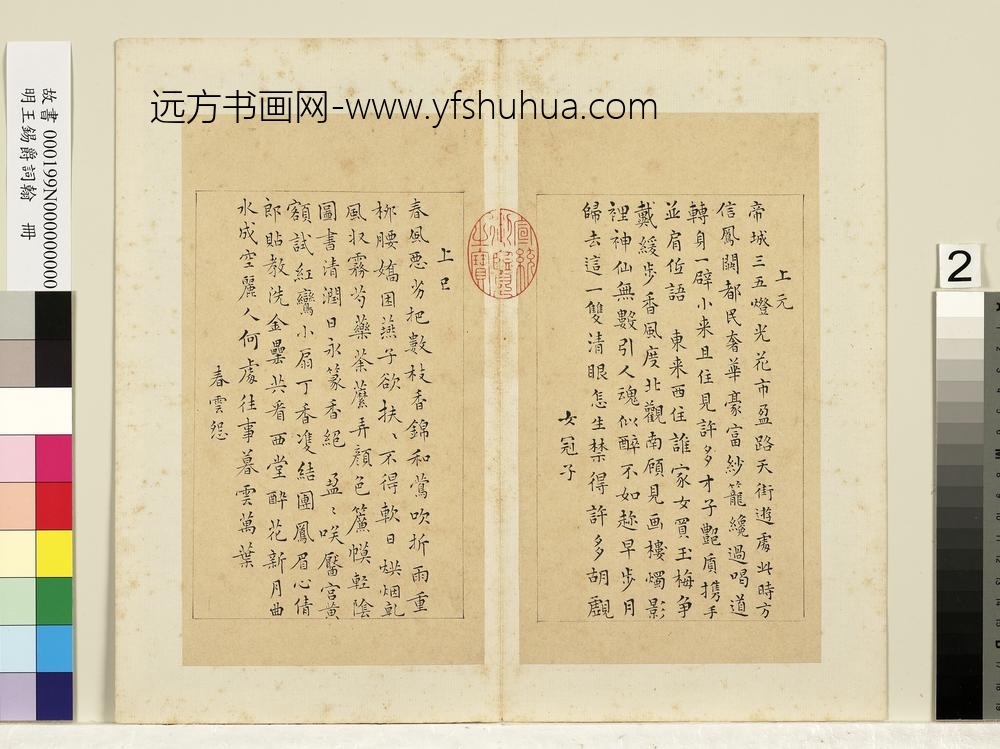 远方书画网-www.yfshuhua.com
故書 000199N000000000
明王錫爵詞翰　冊
2
上元
帝城三五燈光花市盈路天街遊處此時方
信鳳闕都民奢華豪富紗籠纔過喝道
轉身一壁小来且住見許多才子艷質攜手
並肩低語　東来西往誰家女買玉梅争
戴緩步香風度北觀南顧見画樓燭影
裡神仙無數引人魂似醉不如趁早步月
歸去這一雙清眼怎生禁得許多胡覷
女冠子
宣統御覽之寶
上巳
春風惡劣把數枝香錦和鶯吹折雨重
柳腰嬌困燕子欲扶、不得軟日烘烟乾
風收霧芍藥荼蘼弄顏色簾幙輕陰
圖書清潤日永篆香絕　盈〻咲靨宮黄
額試紅鸞小扇丁香雙結團鳳眉心倩
郎貼教洗金罍共看西堂酔花新月曲
水成空麗人何處往事暮雲萬葉
春雲怨